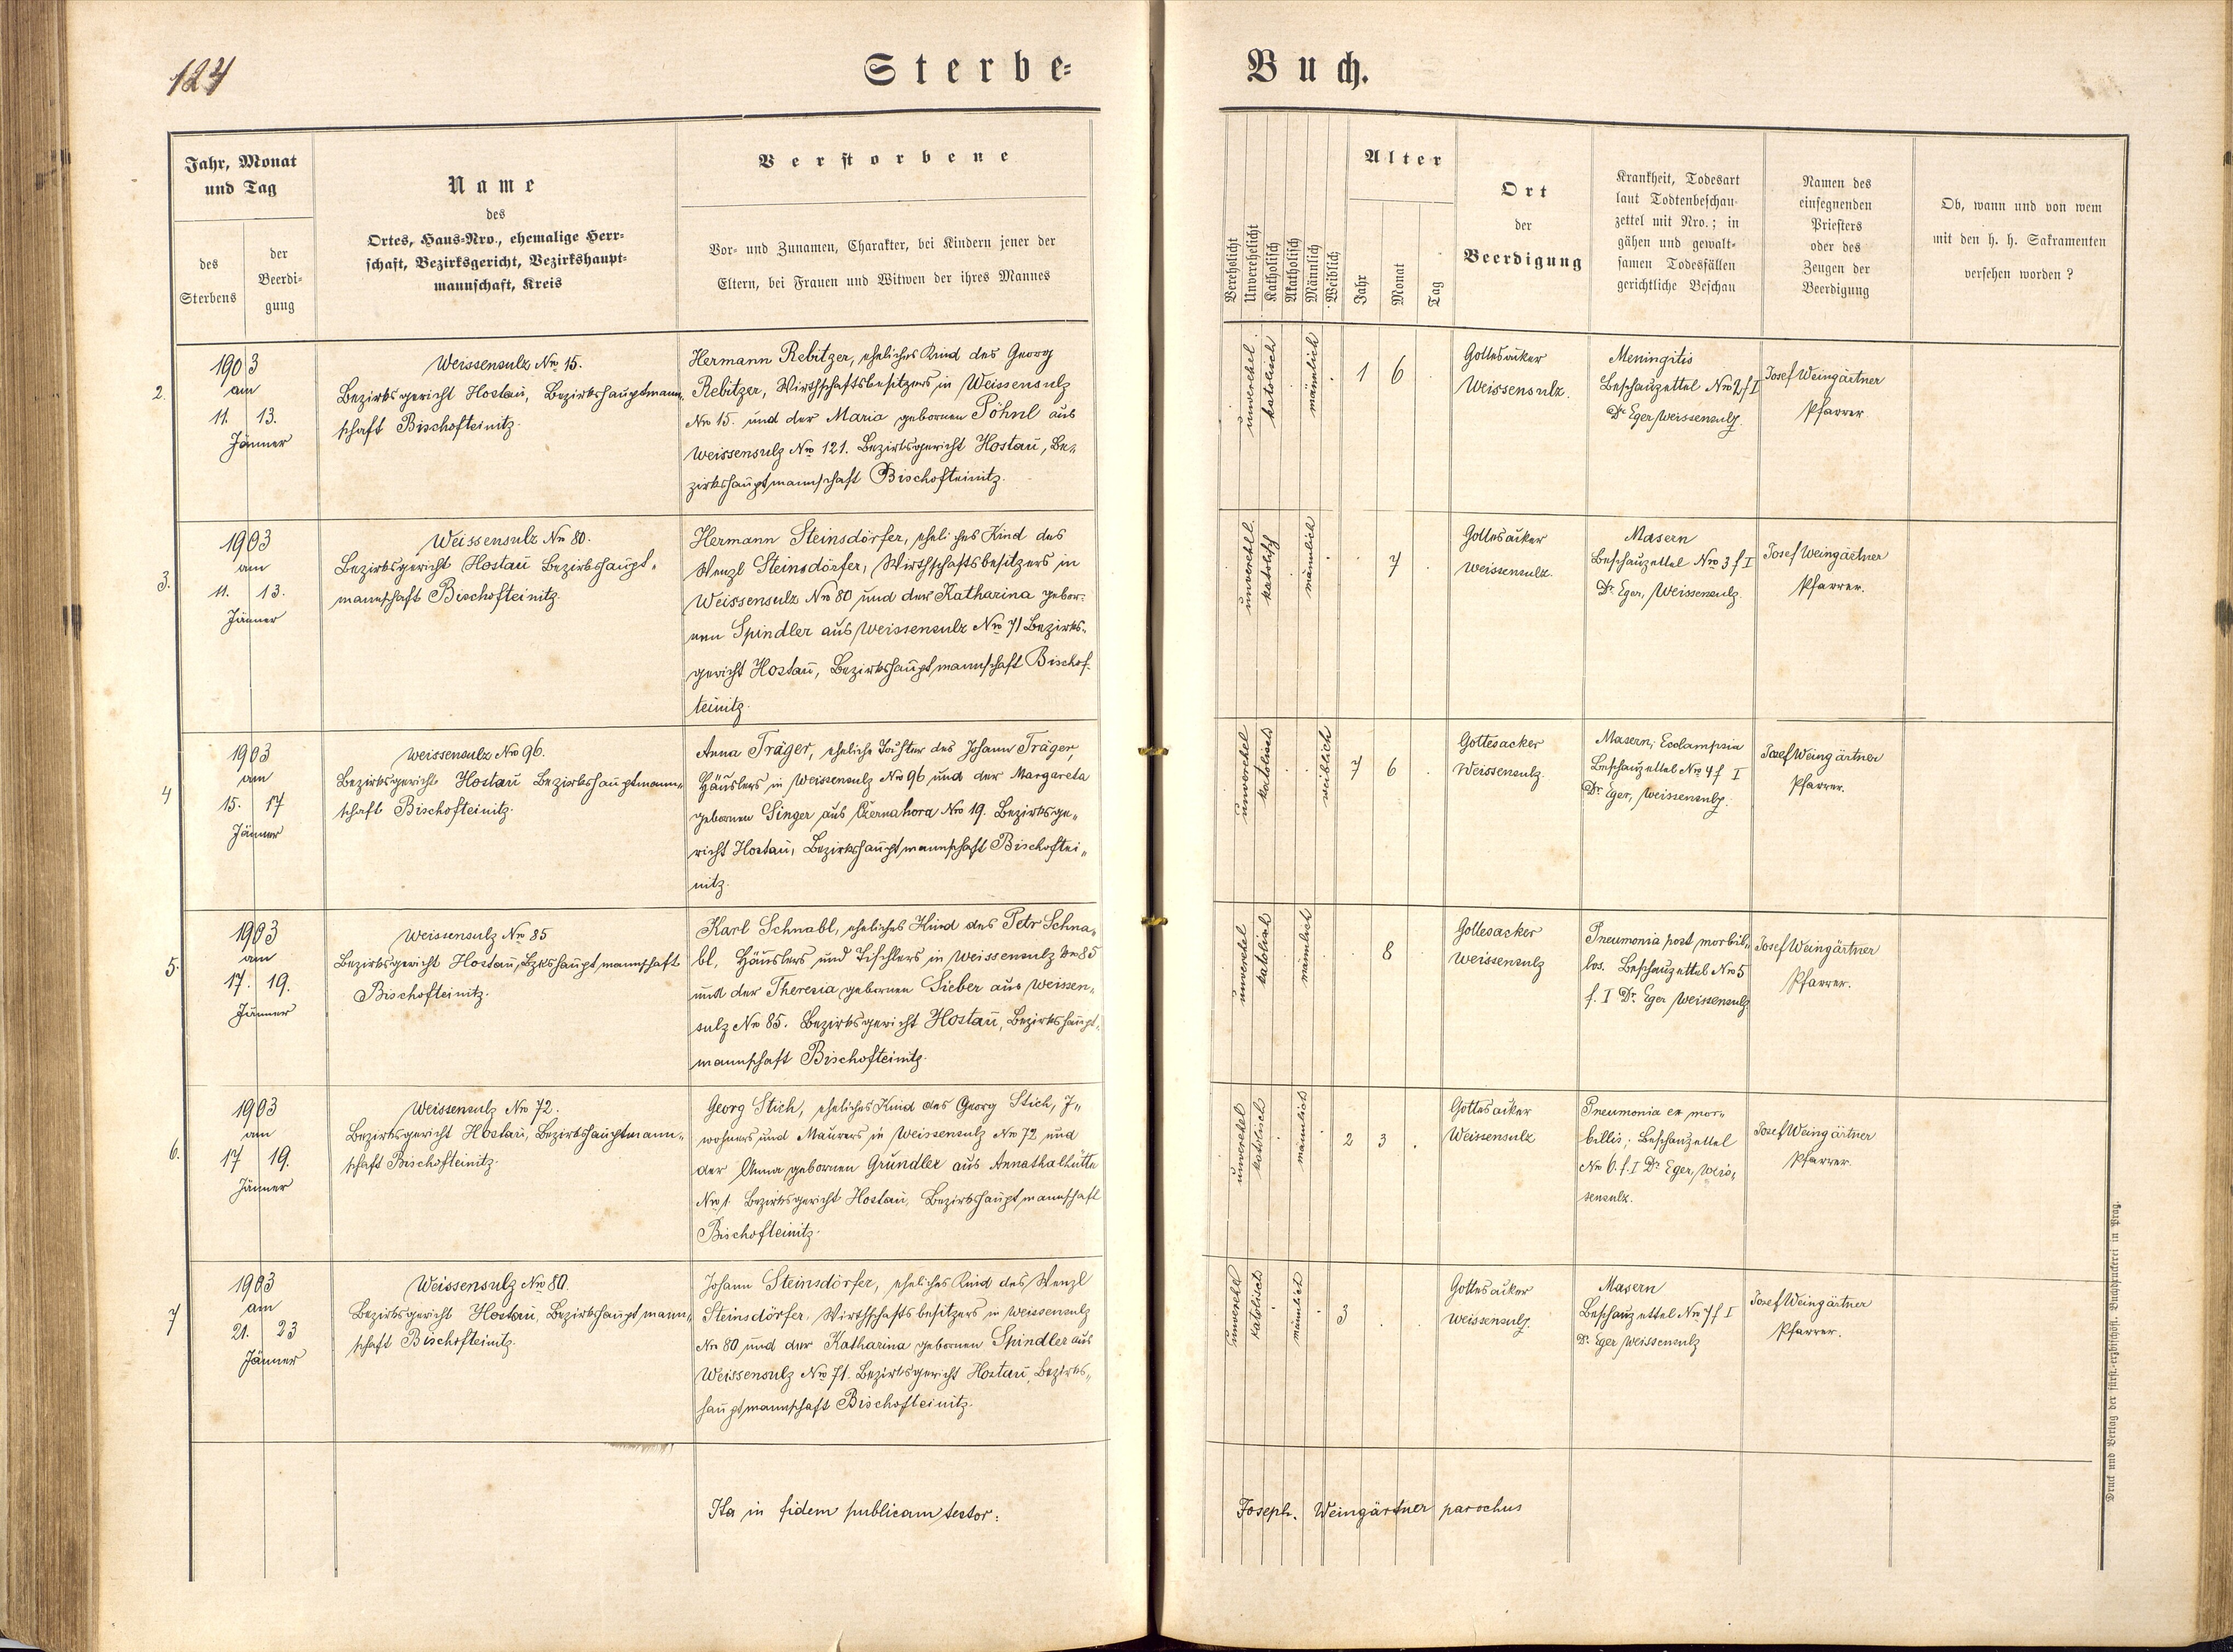 124
Sterbe=
Buch.
Jahr, Monat
und Tag
des
Sterbens
der
Beerdi-
gung
Name
des
Ortes, Haus-Nro., ehemalige Herr-
schaft, Bezirksgericht, Bezirkshaupt-
mannschaft, Kreis
Verstorbene
Vor- und Zunamen, Charakter, bei Kindern jener der
Eltern, bei Frauen und Witwen der ihres Mannes
Verehelicht
Unverehelicht
Katholisch
Akatholisch
Männlich
Weiblich
Alter
Jahr
Monat
Tag
Ort
der
Beerdigung
Krankheit, Todesart
laut Todtenbeschau-
zettel mit Nro.; in
gähen und gewalt-
samen Todesfällen
gerichtliche Beschau
Namen des
einsegnenden
Priesters
oder des
Zeugen der
Beerdigung
Ob, wann und von wem
mit den h. h. Sakramenten
versehen worden ?
2.
1903
am
11. 13.
Jänner
Weissensulz Nro 15.
Bezirksgericht Hostau, Bezirkshauptmann„
schaft Bischofteinitz.
Hermann Rebitzer, eheliches Kind des Georg
Rebitzer, Wirthschaftsbesitzers in Weissensulz
Nro 15. und der Maria gebornen Pöhnl aus
Weissensulz Nro 121. Bezirksgericht Hostau, Be„
zirkshauptmannschaft Bischofteinitz.
unverehel.
katolisch
männlich
1 6
Gottesacker
Weissensulz.
Meningitis
Beschauzettel Nro 2 f I
Dr Eger Weissensulz.
Josef Weingärtner
Pfarrer.
3.
1903
am
11. 13.
Jänner
Weissensulz Nro 80.
Bezirksgericht Hostau Bezirkshaupt„
mannschaft Bischofteinitz.
Hermann Steinsdörfer, eheliches Kind des
Wenzl Steinsdörfer, Wirthschaftsbesitzers in
Weissensulz Nro 80 und der Katharina gebor-
nen Spindler aus Weissensulz Nro 71 Bezirks„
gericht Hostau, Bezirkshauptmannschaft Bischof-
teinitz.
unverehel.
katolisch
männlich
7
Gottesacker
Weissensulz.
Masern
Beschauzettel Nro 3 f I
Dr. Eger, Weissensulz.
Josef Weingärtner
Pfarrer.
4
1903
am
15. 17
Jänner
Weissensulz Nro 96.
Bezirksgericht Hostau Bezirkshauptmann„
schaft Bischofteinitz.
Anna Träger, eheliche Tochter des Johann Träger,
Häuslers in Weissensulz Nro 96 und der Margareta
gebornen Singer aus Czernahora Nro 19. Bezirksge„
richt Hostau, Bezirkshauptmannschaft Bischoftei„
nitz.
unverehel
katolisch
weiblich
7 6
Gottesacker
Weissensulz.
Masern; Ecclampsia
Beschauzettel Nro 4 f I
Dr. Eger, Weissensulz.
Josef Weingärtner
Pfarrer.
5.
1903
am
17. 19.
Jänner
Weissensulz Nro 85
Bezirksgericht Hostau, Bzkshauptmannschaft
Bischofteinitz.
Karl Schnabl, eheliches Kind des Petr Schna„
bl, Häuslers und Tischlers in Weissensulz Nro 85
und der Theresia gebornen Sieber aus Weissen„
sulz Nro 85. Bezirksgericht Hostau, Bezirkshaupt„
mannschaft Bischofteinitz.
unverehel
katolisch
männlich
8
Gottesacker
Weissensulz
Pneumonia post morbil„
los. Beschauzettel Nro 5
f. I Dr. Eger Weissensulz
Josef Weingärtner
Pfarrer.
6.
1903
am
17 19.
Jänner
Weissensulz Nro 72.
Bezirksgericht Hostau, Bezirkshauptmann„
schaft Bischofteinitz.
Georg Stich, eheliches Kind des Georg Stich, I„
wohners und Maurers in Weissensulz Nro 72 und
der Anna gebornen Gründler aus Annathalhütte
Nro 1. Bezirksgericht Hostau, Bezirkshauptmannschaft
Bischofteinitz.
unverehel
katolisch
männlich
2 3
Gottesacker
Weissensulz
Pneumonia ex mor„
billis; Beschauzettel
Nro 6. f. I Dr. Eger, Weis„
sensulz.
Josef Weingärtner
Pfarrer.
7
1903
am
21. 23
Jänner
Weissensulz Nro 80.
Bezirksgericht Hostau, Bezirkshauptmann„
schaft Bischofteinitz.
Johann Steinsdörfer, eheliches Kind des Wenzl
Steinsdörfer, Wirthschaftsbesitzers in Weissensulz
Nro 80 und der Katharina gebornen Spindler aus
Weissensulz Nro 71. Bezirksgericht Hostau, Bezirks„
hauptmannschaft Bischofteinitz.
unverehel
katolisch
männlich
3
Gottesacker
Weissensulz.
Masern
Beschauzettel Nro 7 f I
Dr. Eger Weissensulz
Josef Weingärtner
Pfarrer.
Ita in fidem publicam testor:
Joseph. Weingärtner parochus
Druck und Verlag der fürst.-erzbischöfl. Buchdruckerei in Prag.